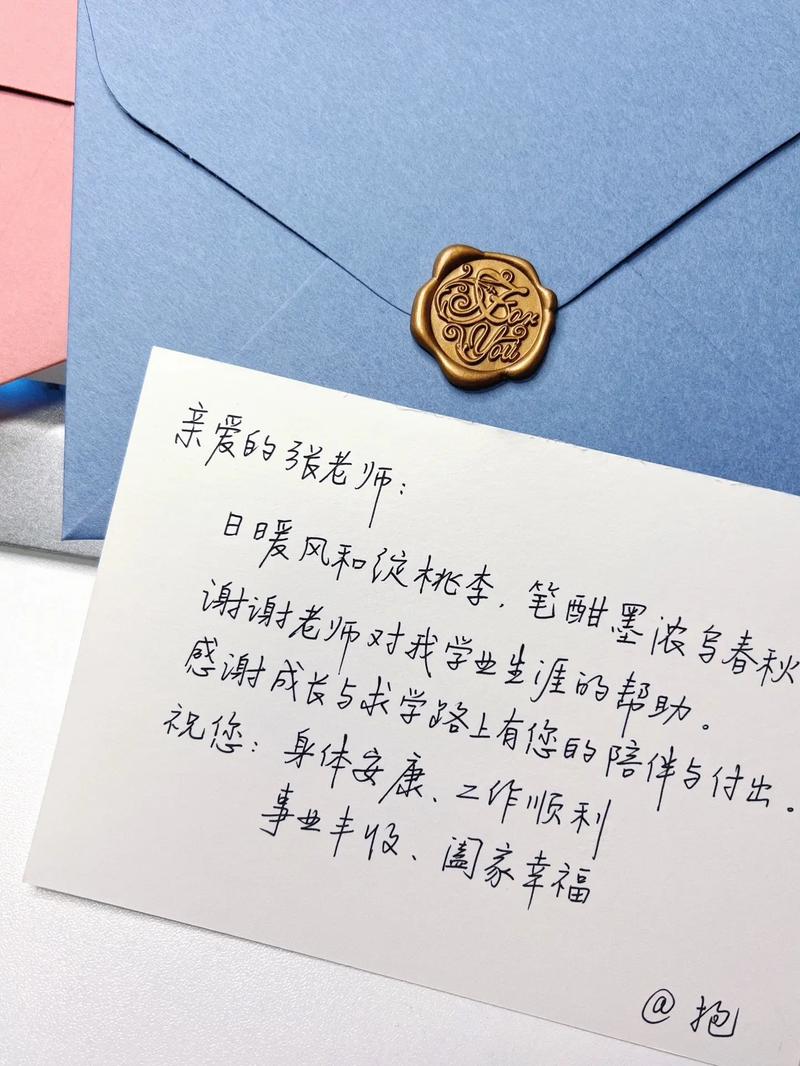 For
You
亲爱的张老师:
日暖风和绽桃李,笔酣墨浓写春秋
谢谢老师对我学业生涯的帮助。
感谢成长与求学路上有您的陪伴与付出。
祝您:身体安康、工作顺利
事业丰收、阖家幸福
@抱